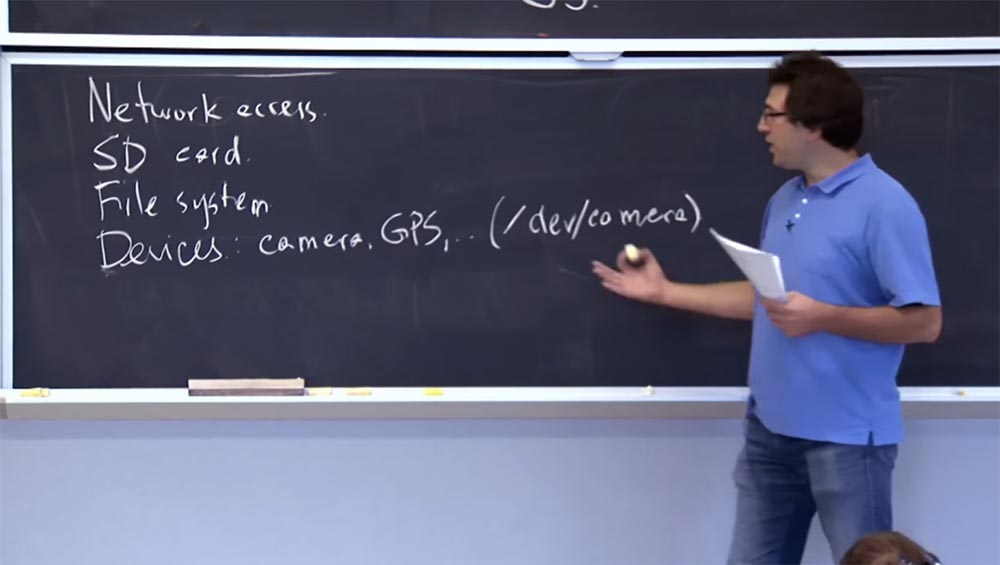 Network access.
SD card.
File system
Devices: camera, GPS, ... (/dev/camera)